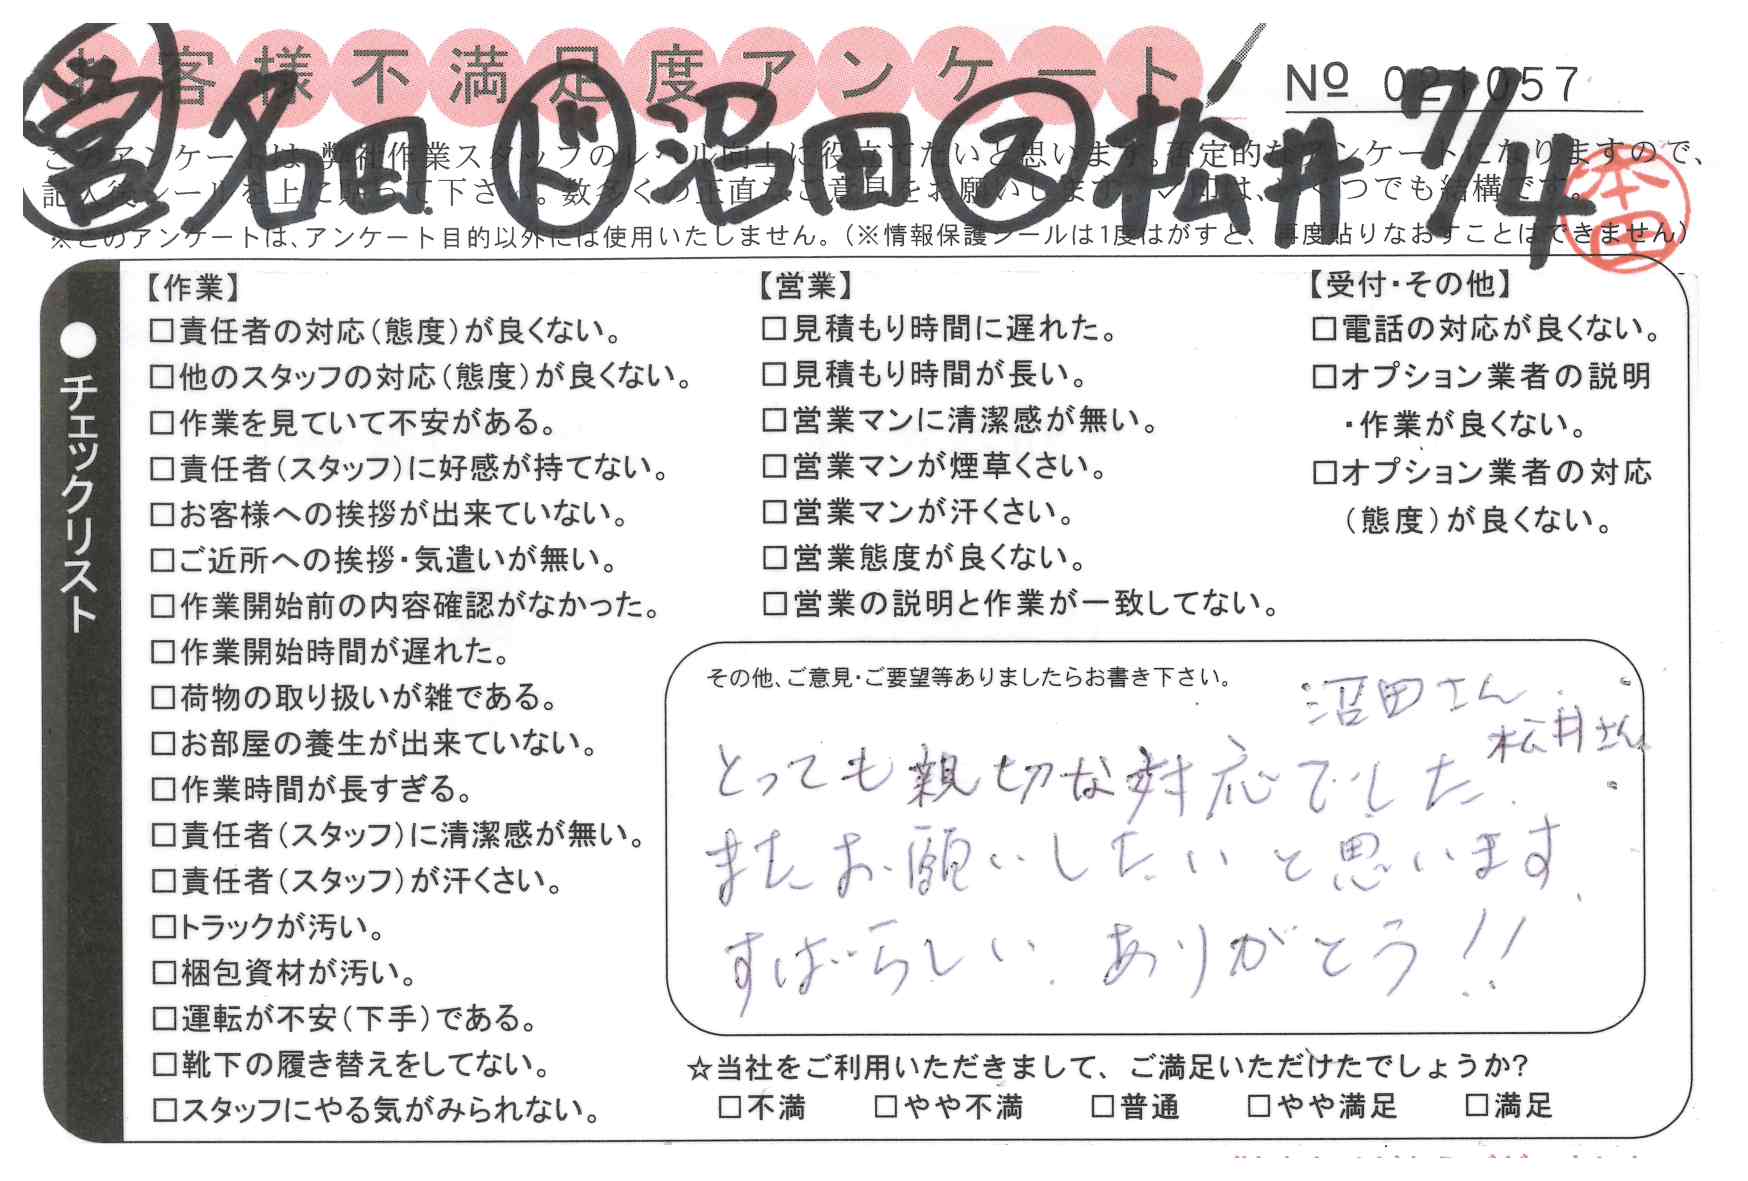 お客様不満足度アンケート
№ 021057
営 名田 ド 沼田 ス 松井 7/4
本田
このアンケートは、弊社作業スタッフのレベル向上に役立てたいと思います。否定的なアンケートになりますので、
記入後シールを上に貼って下さい。数多くの正直なご意見をお願いします。✓印は、いくつでも結構です。
※このアンケートは、アンケート目的以外には使用いたしません。(※情報保護シールは1度はがすと、再度貼りなおすことはできません)
●チェックリスト
【作業】
□責任者の対応(態度)が良くない。
□他のスタッフの対応(態度)が良くない。
□作業を見ていて不安がある。
□責任者(スタッフ)に好感が持てない。
□お客様への挨拶が出来ていない。
□ご近所への挨拶・気遣いが無い。
□作業開始前の内容確認がなかった。
□作業開始時間が遅れた。
□荷物の取り扱いが雑である。
□お部屋の養生が出来ていない。
□作業時間が長すぎる。
□責任者(スタッフ)に清潔感が無い。
□責任者(スタッフ)が汗くさい。
□トラックが汚い。
□梱包資材が汚い。
□運転が不安(下手)である。
□靴下の履き替えをしてない。
□スタッフにやる気がみられない。
【営業】
□見積もり時間に遅れた。
□見積もり時間が長い。
□営業マンに清潔感が無い。
□営業マンが煙草くさい。
□営業マンが汗くさい。
□営業態度が良くない。
□営業の説明と作業が一致してない。
【受付・その他】
□電話の対応が良くない。
□オプション業者の説明
・作業が良くない。
□オプション業者の対応
(態度)が良くない。
その他、ご意見・ご要望等ありましたらお書き下さい。
沼田さん
松井さん
とっても親切な対応でした.
またお願いしたいと思います.
すばらしい. ありがとう!!
☆当社をご利用いただきまして、ご満足いただけたでしょうか?
□不満 □やや不満 □普通 □やや満足 □満足